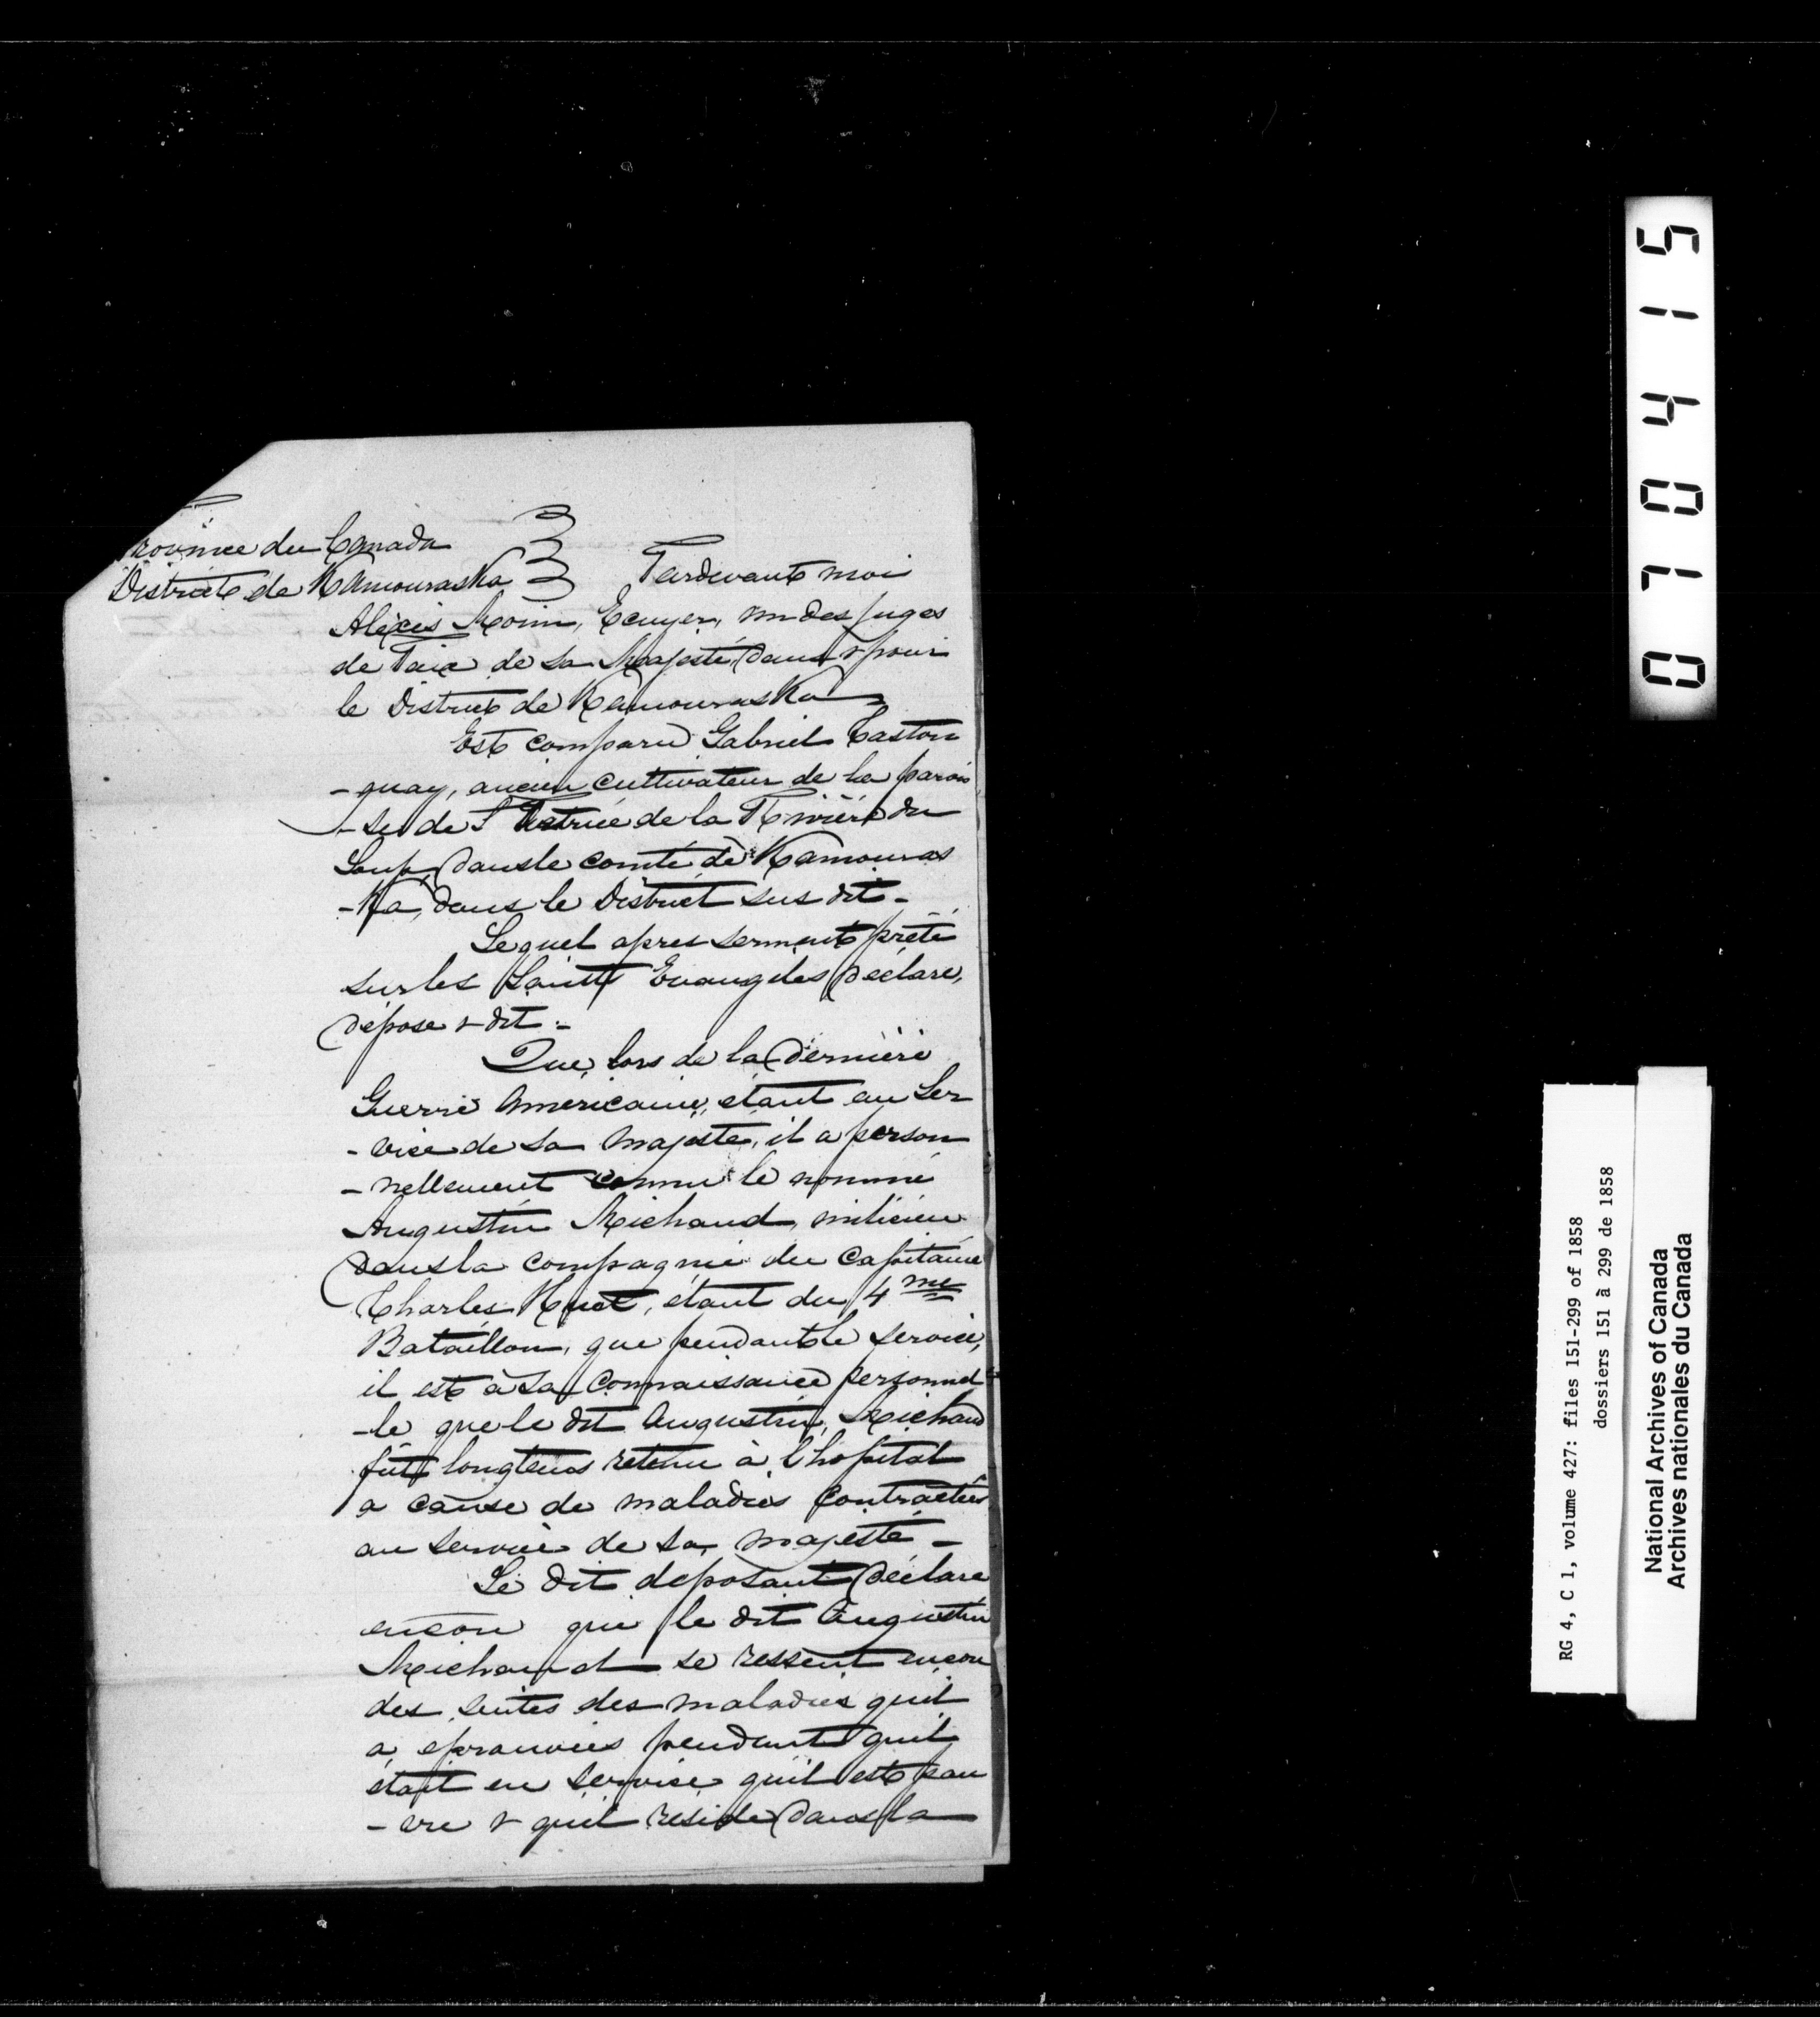 Province du Canada
District de Kamouraska
Pardevant moi
Alexis Morin, Ecuyer, un des juges
de Paix de Sa Majesté, dans & pour
le District de Kamouraska
Est comparu Gabriel Caston
-guay, ancien cultivateur de la parois
-se de St Patrice de la Rivière du
Loup, dans le comté de Kamouras
-Ka, dans le District sus dit -
Lequel apres serment prêté
sur les Saints Evangiles déclare,
dépose & dit :-
Que, lors de la dernière
Guerre Americaine, étant au Ser
-vice de Sa Majesté, il a person
-nellement connu le nommé
Augustin Michaud, milicien
dans la compagnie du Capitaine
Charles Huot, étant du 4me
Bataillon, que pendant le service,
il est à sa connaissance personnel
-le que le dit Augustin Michaud
fût longtems retenu à l'hopital
a cause de maladies contractées
au service de Sa Majesté -
Le dit deposant déclare
encore que le dit Augustin
Michaud se ressent encore
des suites des maladies quil
a eprouvées pendant quil
était en service quil est pau
-vre & quil reside dans la
070415
RG 4, C 1, volume 427: files 151-299 of 1858
dossiers 151 à 299 de 1858
National Archives of Canada
Archives nationales du Canada